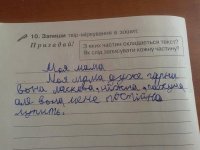 10. Запиши твір-міркування в зошит.
Пригадай!
З яких частин складається текст?
Як слід записувати кожну частину?
Моя мама
Моя мама дуже гарна
вона ласкава, ніжна,
але вона мене постійно
лупить.